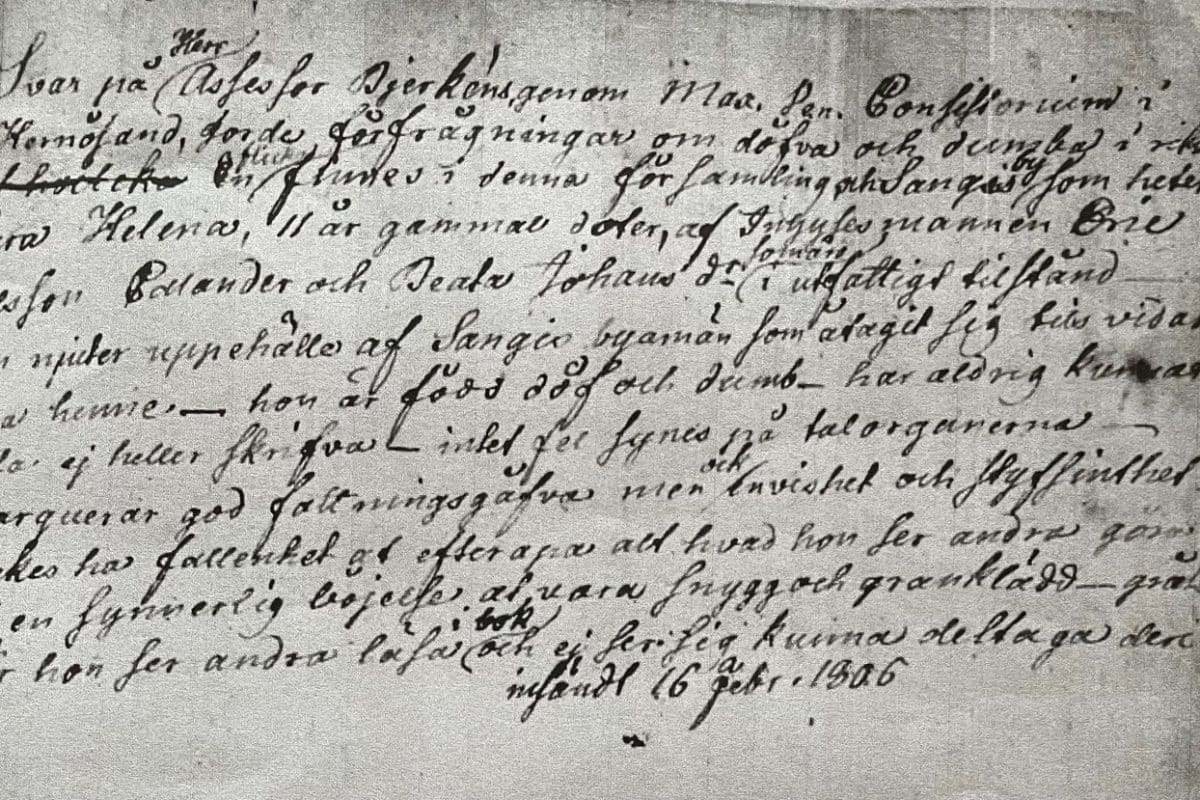 Svar på Herr Assessor Bjerkéns, genom Max. Ven. Consistorium i
Hernösand, gorde förfrågningar om döfva och dumba i rik
En flicka finnes i denna församling och Sangis by som heter
ra Helena, 11 år gammal doter, af Inhysesmannen Eric
sson Calander och Beata Johans dr i utfattigt tilstånd
njuter uppehälle af Sangis byamän som åtagit sig tils vidar
a henne. — hon är född döf och dumb — har aldrig kunnat
la ej heller skrifva — intet fel synes på talorganerna —
arquerar god fattningsgåfva men ock envishet och styfsinthet
kes ha fallenhet at efterapa alt hvad hon ser andra göra
en synnerlig böjelse at vara snygg och grankládd — grå
r hon ser andra läsa i bok och ej ser sig kunna deltaga der
insändt 16 Febr. 1806